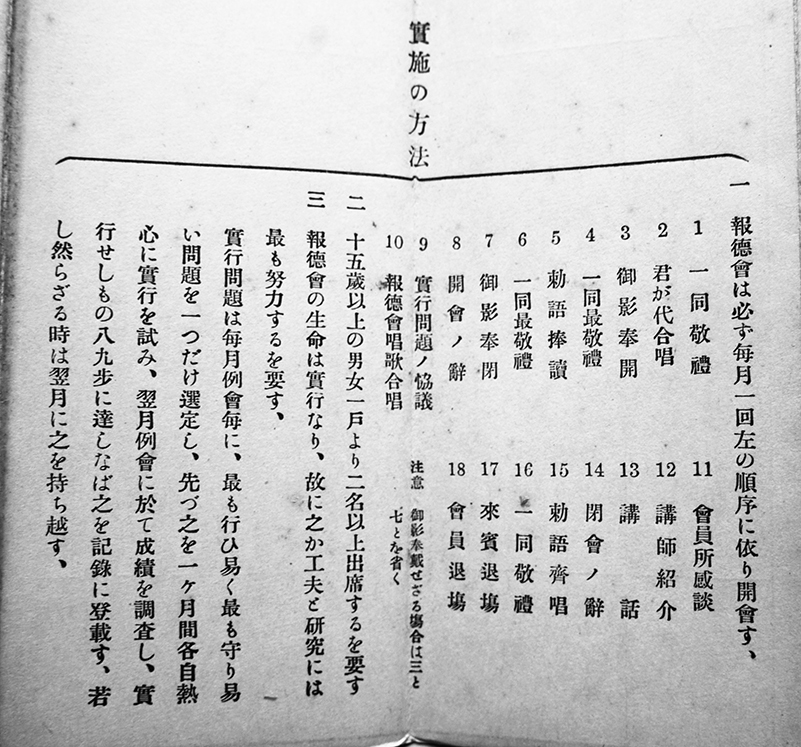 實施の方法
一 報德會は必ず每月一回左の順序に依り開會す、
1 一同敬禮
2 君が代合唱
3 御影奉開
4 一同最敬禮
5 勅語捧讀
6 一同最敬禮
7 御影奉閉
8 開會ノ辭
9 實行問題ノ恊議
10 報德會唱歌合唱
11 會員所感談
12 講師紹介
13 講話
14 閉會ノ辭
15 勅語齊唱
16 一同敬禮
17 來賓退塲
18 會員退塲
注意 御影奉戴せざる塲合は三と
七とを省く
二 十五歲以上の男女一戶より二名以上出席するを要す
三 報德會の生命は實行なり、故に之か工夫と硏究には
最も努力するを要す、
實行問題は每月例會每に、最も行ひ易く最も守り易
い問題を一つだけ選定し、先づ之を一ケ月間各自熱
心に實行を試み、翌月例會に於て成績を調査し、實
行せしもの八九步に達しなば之を記錄に登載す、若
し然らざる時は翌月に之を持ち越す、